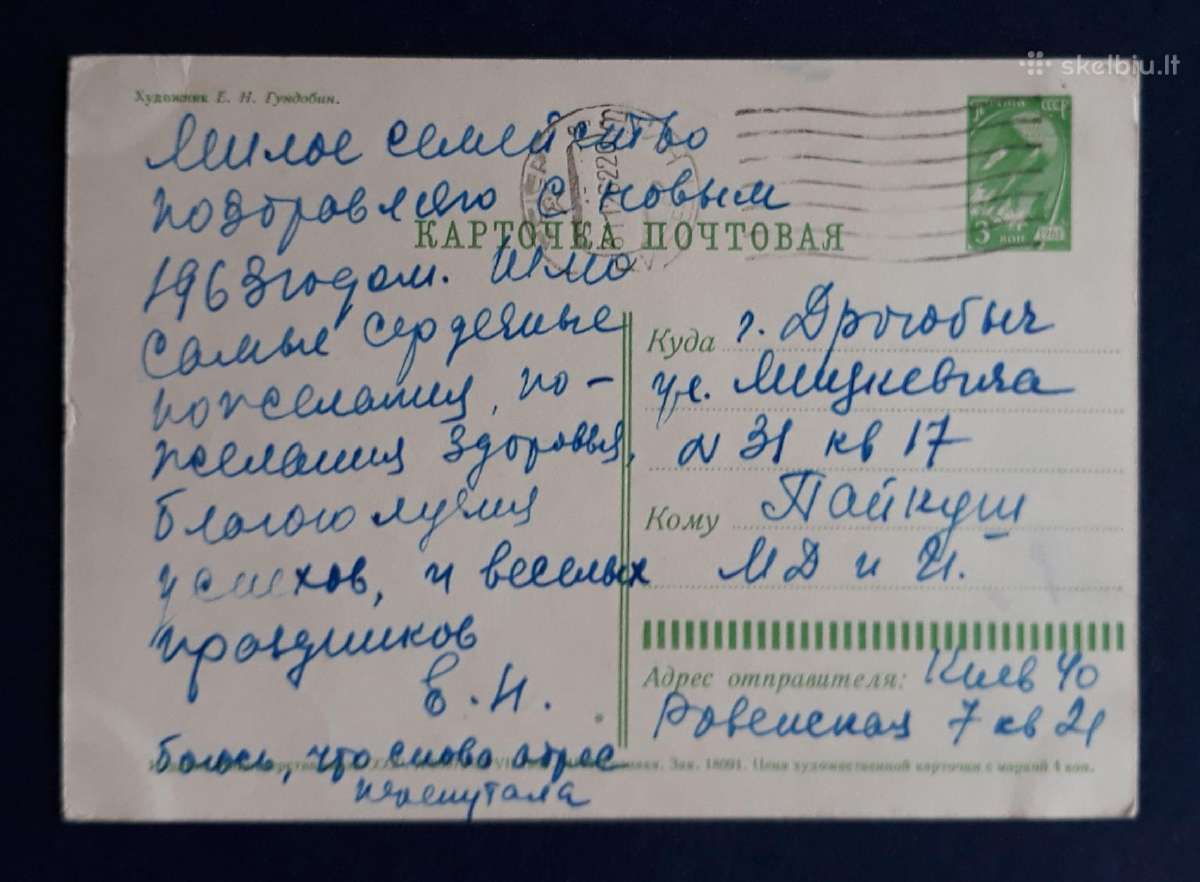 skelbiu.lt
Художник Е. Н. Гундобин.
СССР
3 коп 1961
КАРТОЧКА ПОЧТОВАЯ
Милое семейство
поздравляю с новым
1963 годом. Шлю
самые сердечные
пожелания, по-
желания здоровья,
благополучия
успехов, и веселых
праздников
Е. Н.
боюсь, что снова адрес
перепутала
Куда г. Дрогобыч
ул. Мицкевича
N 31 кв 17
Кому Пайкуш
МД и И.
Адрес отправителя: Киев 40
Ровенская 7 кв 21
Зак. 18091. Цена художественной карточки с маркой 4 коп.